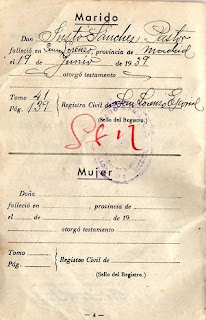 Marido
Don Justo Sánchez Pastor
falleció en San Lorenzo, provincia de Madrid
el 19 de Junio de 1939
otorgó testamento
Tomo 41
Pág. 139 Registro Civil de San Lorenzo Escorial
(Sello del Registro.)
Mujer
Doña
falleció en , provincia de
el de de 19
otorgó testamento
Tomo
Pág. Registro Civil de
(Sello del Registro.)
— 4 —